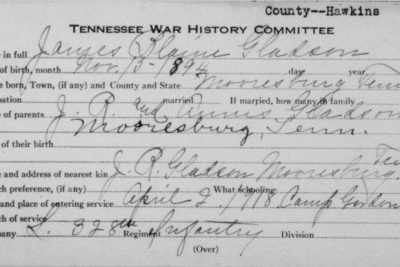 County--Hawkins
TENNESSEE WAR HISTORY COMMITTEE
e in full James Blaine Gladson
of birth, month Nov. 15-1894 day year
re born, Town, (if any) and County and State Mooresburg Tenn
pation married If married, how many in family
e of parents J. R. and Gladson
of their birth Mooresburg, Tenn.
e and address of nearest kin J. R. Gladson Mooresburg. Ten
ch preference, (if any) What schooling:
and place of entering service April 2. 1918 Camp Gordon
ch of service
pany L. 328th Regiment Infantry Division
(Over)